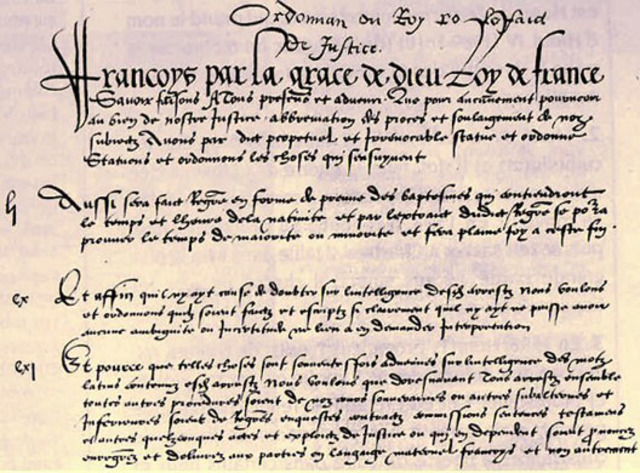 Ordonnan du Roy
De Justice.
Francoys par la grace de dieu Roy de france
Savoir faisons A tous presens et advenir. Que pour aucunement pourveoir
au bien de nostre Justice abbreviation des proces et soulagement de noz
subiectz Avons par edict perpetuel et Irrevocable statue et ordonne
Statuons et ordonnons les choses qui sensuyvent
li Aussi sera faict Regre en forme de preuve des baptesmes qui contiendront
le temps et lheure dela nativite et par lextraict dudict Regre se porra
prouver le temps de maiorite ou minorite et fera plaine foy a ceste fin.
cx Et affin quil ny ayt cause de doubter sur lintelligence desd arrestz Nous voulons
et ordonnons quilz soient faictz et escriptz si clairement quil ny ayt ne puisse avoir
aucune ambiguite ou Incertitude ne lieu a en demander Interpretation
cxi Et pource que telles choses sont souventesfois advenues sur lintelligence des motz
latins contenuz esd arrestz Nous voulons que doresnavant Tous arrestz ensemble
toutes autres procedures soient de noz cours souveraines ou autres subalternes et
Inferieures soient de Regres enquestes contractz commissions sentences testamens
et autres quelzconques actes et exploictz de Justice ou qui en dependent soient prononcez
enregrez et delivrez aux parties en langage maternel francoys et non autrement